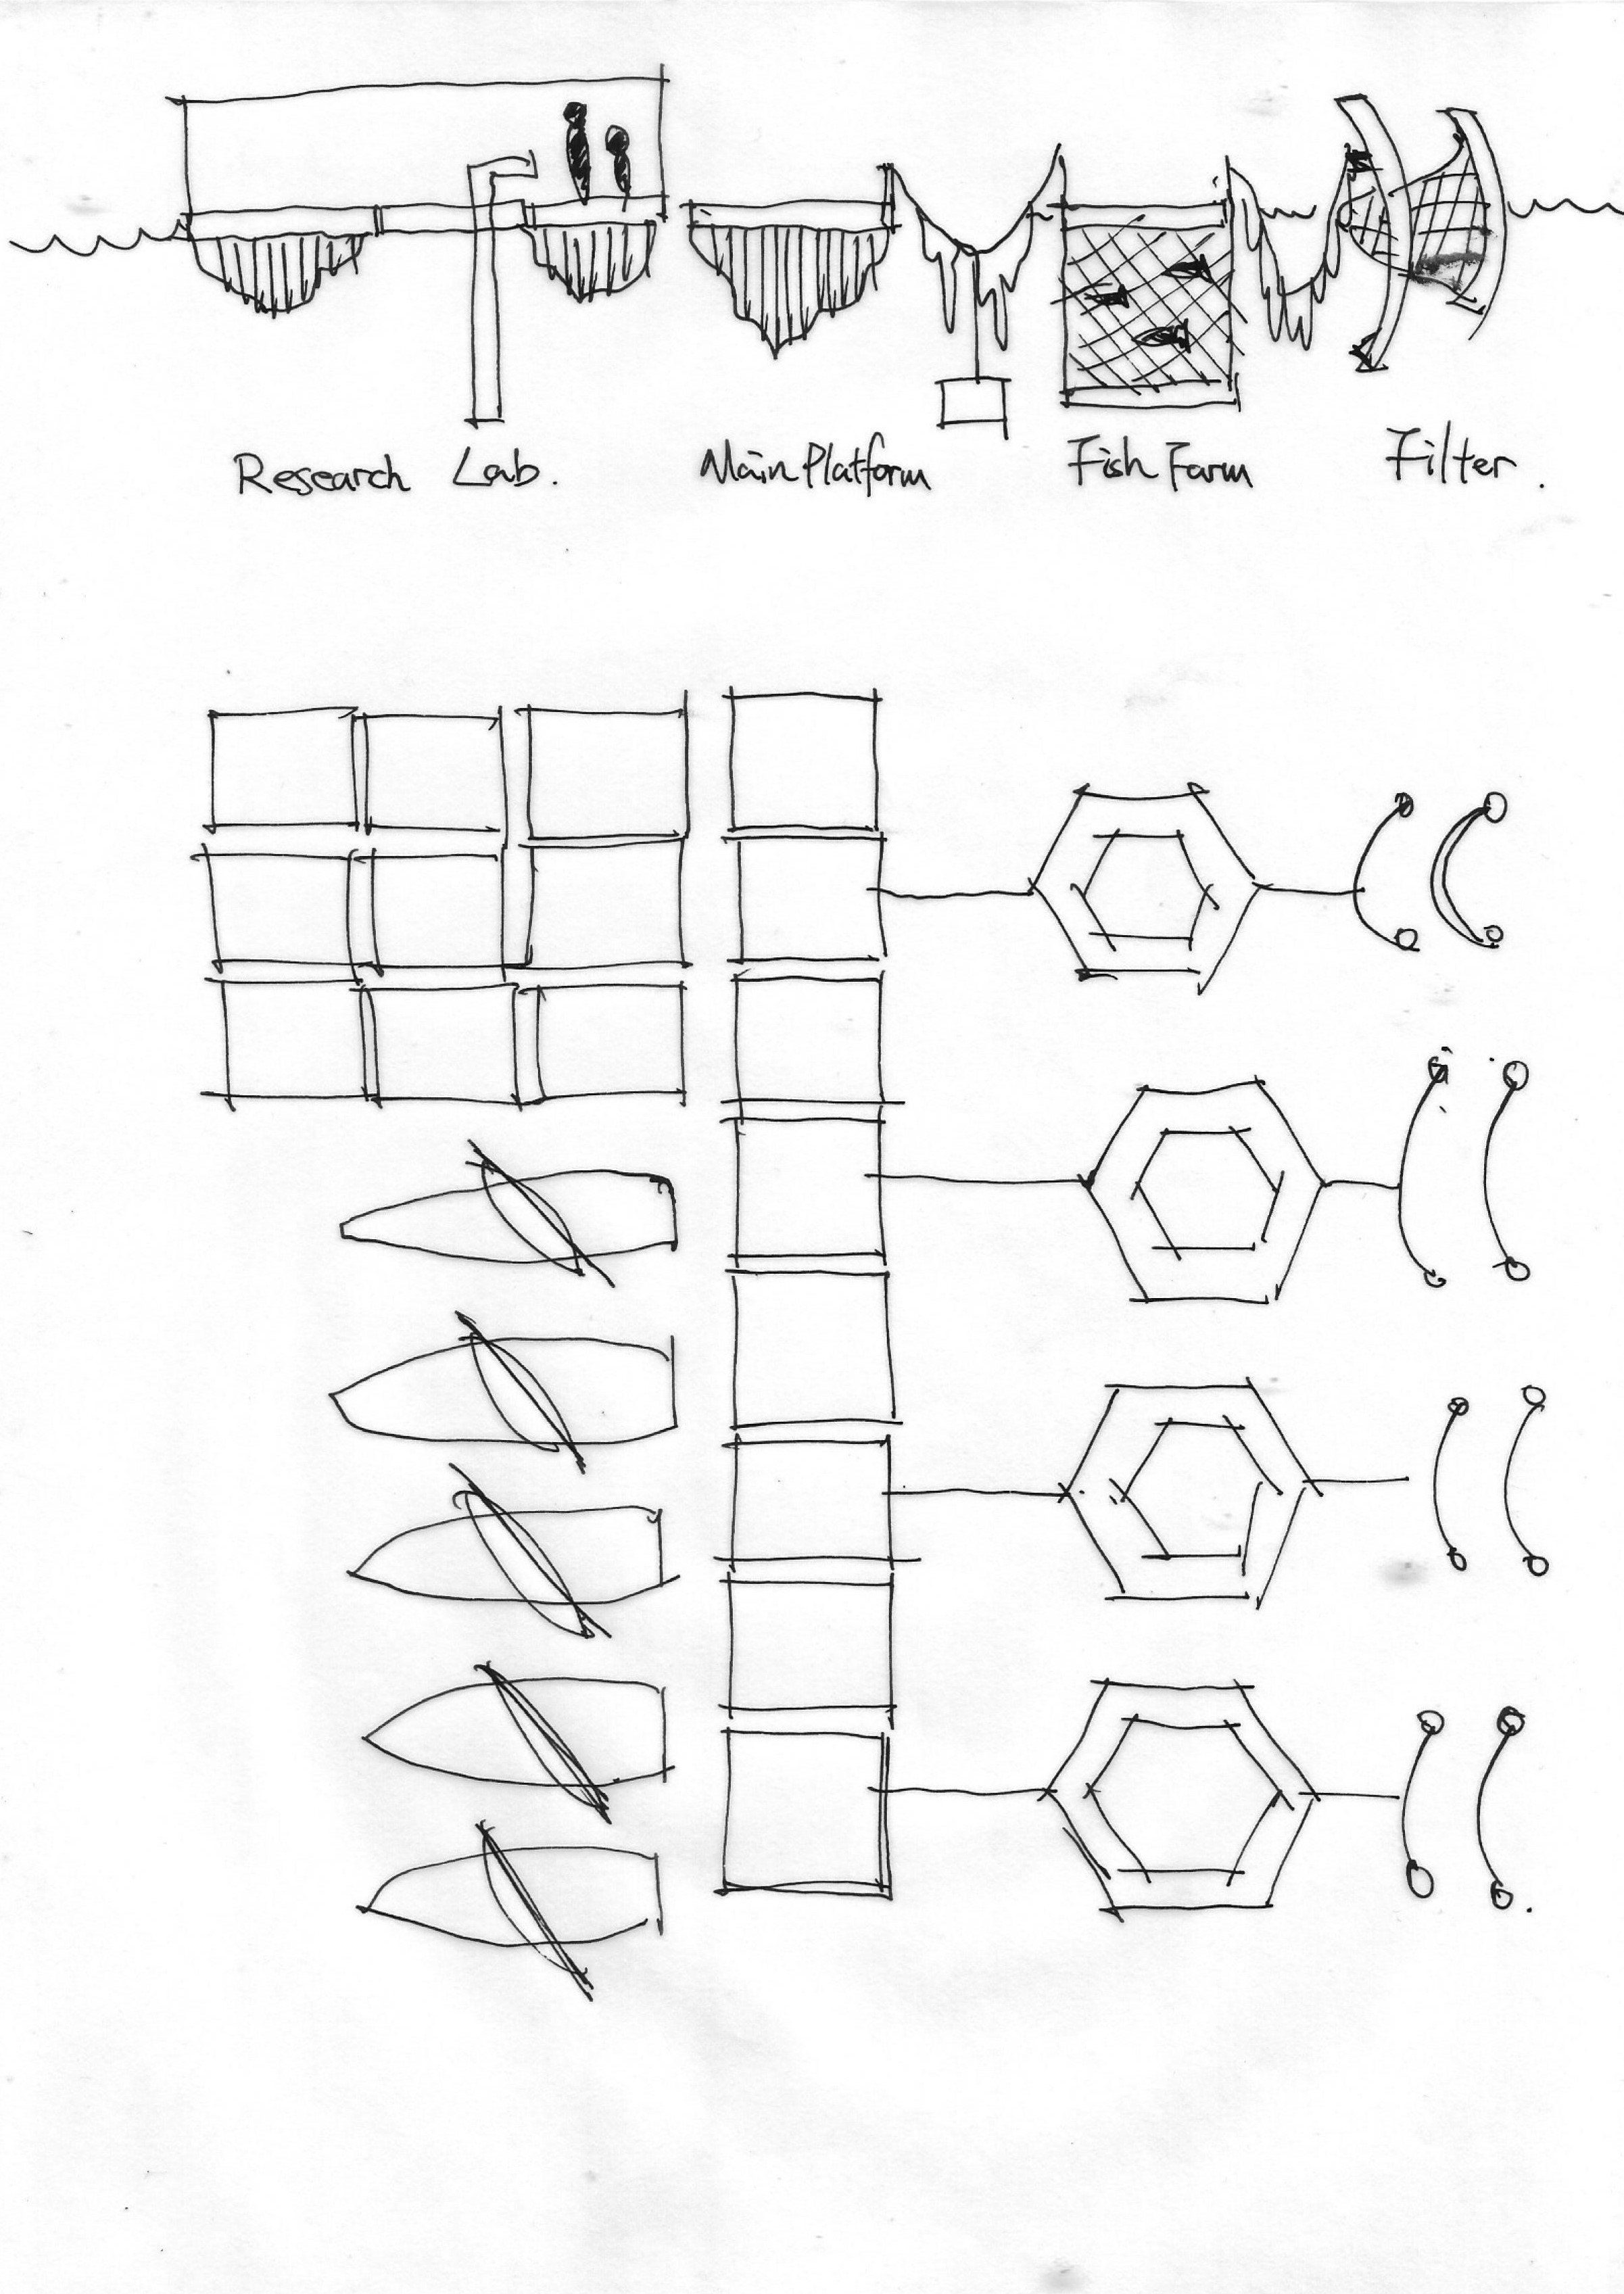 Research Lab. Main Platform Fish Farm Filter.